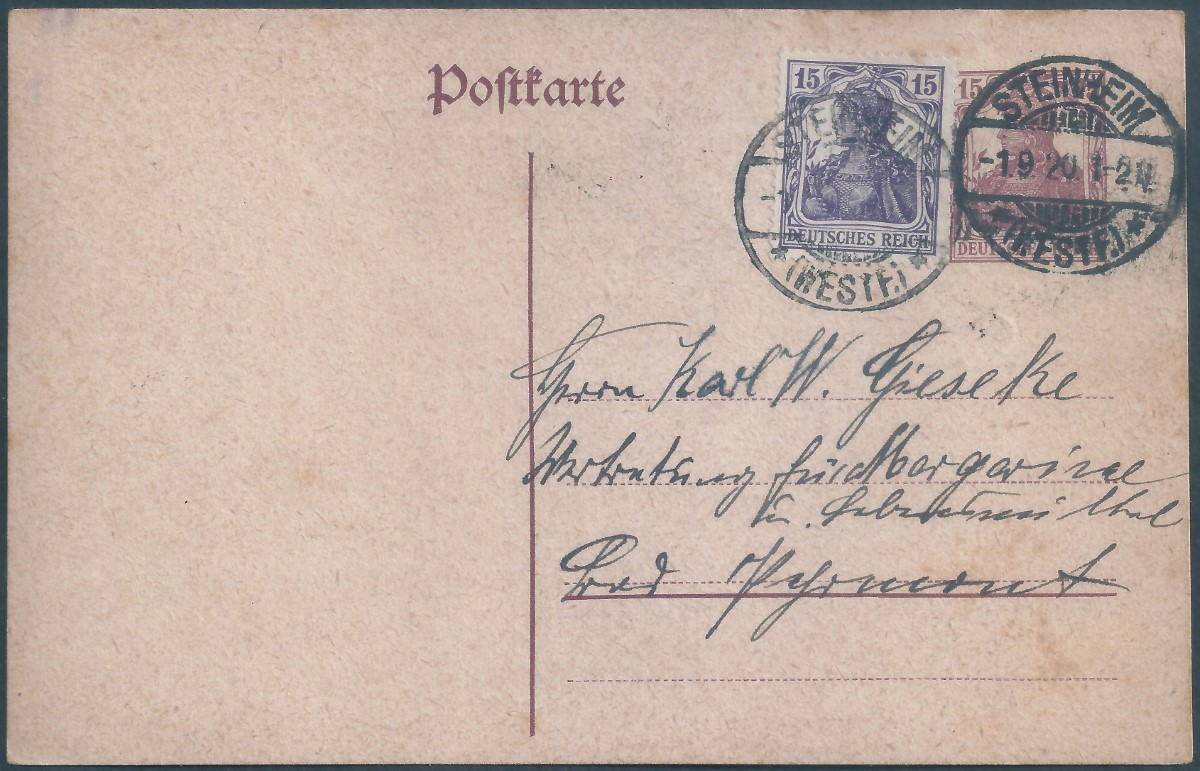 Postkarte
15 15
DEUTSCHES REICH
15
DEU
STEINHEIM
-1.9.20.1-2N.
* (WESTF.) *
STEINHEIM
* (WESTF.) *
Herrn Karl W. Gieseke
Vertretung für Margarine
u. Lebensmittel
Bad Pyrmont